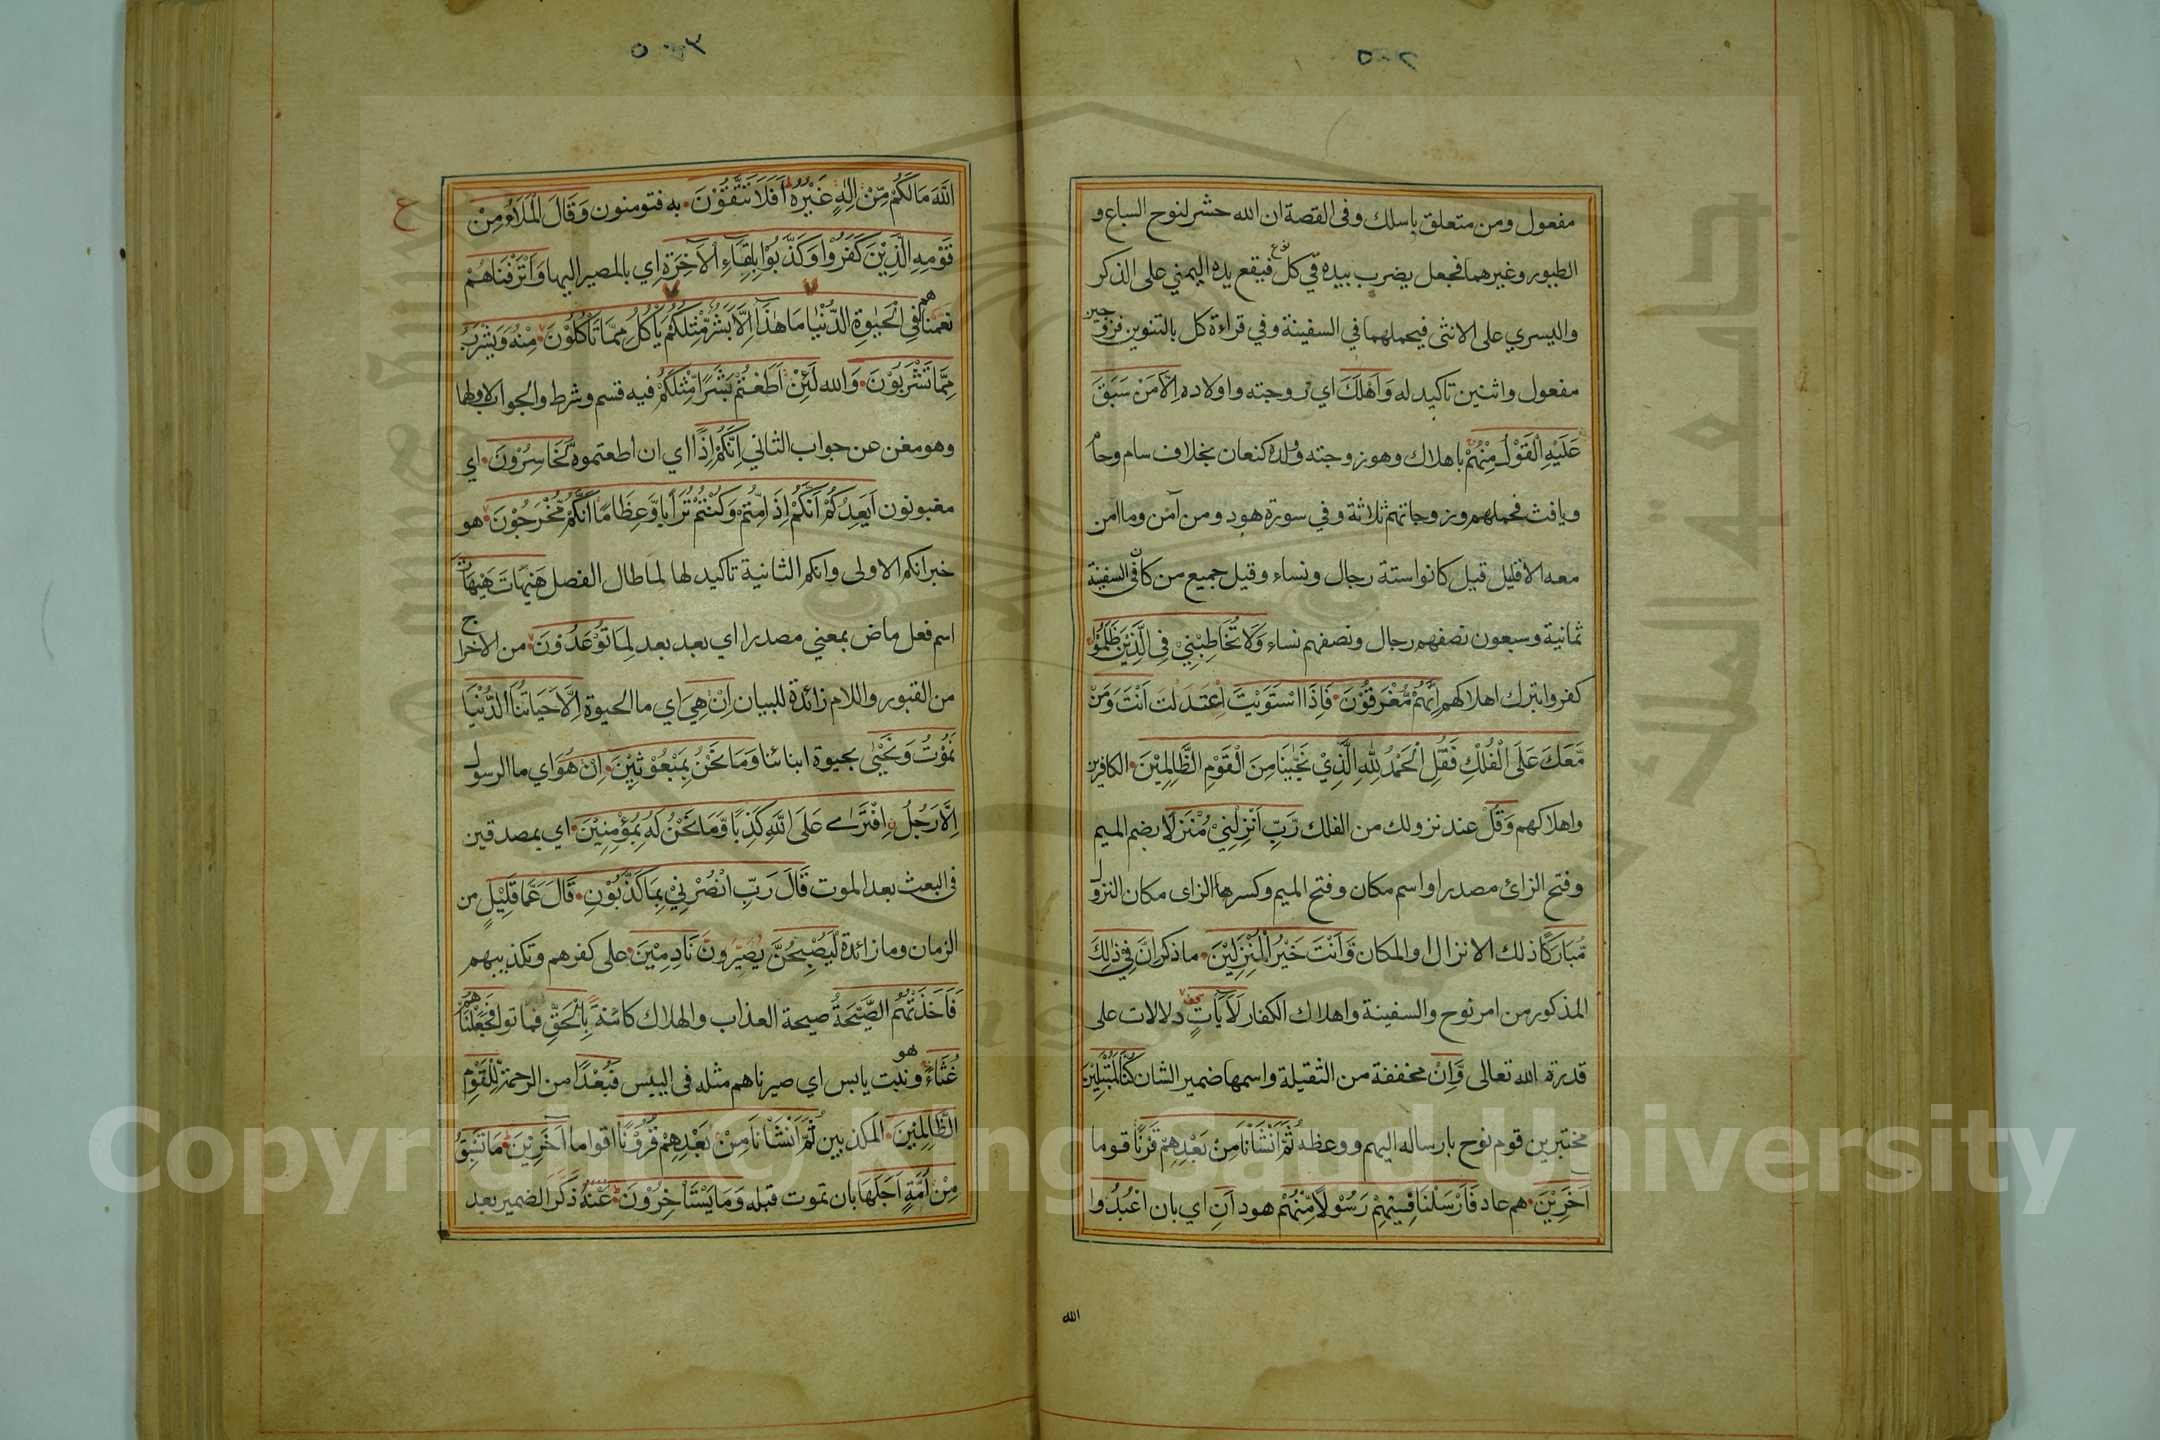 ٥٠٢
مفعول ومن متعلق باسلك وفي القصة ان الله حشر لنوح السباع و
الطيور وغيرهما فجعل يضرب بيده في كل نوع فيقع يده اليمني على الذكر
واليسري على الانثى فيحملهما في السفينة وفي قراءة كل بالتنوين فزوجين
مفعول واثنين تاكيد له وَاَهْلَكَ اي زوجته واولاده اِلَّا مَنْ سَبَقَ
عَلَيْهِ الْقَوْلُ مِنْهُمْ باهلاك وهو زوجته وولده كنعان بخلاف سام وحام
ويافث فحملهم وزوجاتهم ثلاثة وفي سورة هود ومن آمن وما امن
معه الا قليل قيل كانوا ستة رجال ونساء وقيل جميع من كان في السفينة
ثمانية وسبعون نصفهم رجال ونصفهم نساء وَلَا تُخَاطِبْنِيْ فِي الَّذِيْنَ ظَلَمُوْا
كفروا بترك اهلاكهم اِنَّهُمْ مُّغْرَقُوْنَ فَاِذَا اسْتَوَيْتَ اعتدلت اَنْتَ وَمَنْ
مَّعَكَ عَلَى الْفُلْكِ فَقُلِ الْحَمْدُ لِلّٰهِ الَّذِيْ نَجّٰىنَا مِنَ الْقَوْمِ الظّٰلِمِيْنَ الكافرين
واهلاكهم وَقُلْ عند نزولك من الفلك رَّبِّ اَنْزِلْنِيْ مُنْزَلًا بضم الميم
وفتح الزائ مصدر او اسم مكان وفتح الميم وكسرها الزاى مكان النزول
مُّبَارَكًا ذلك الانزال والمكان وَّاَنْتَ خَيْرُ الْمُنْزِلِيْنَ ما ذكر اِنَّ فِيْ ذٰلِكَ
المذكور من امر نوح والسفينة واهلاك الكفار لَاٰيٰتٍ دلالات على
قدرة الله تعالى وَّاِنْ مخففة من الثقيلة واسمها ضمير الشان كُنَّا لَمُبْتَلِيْنَ
مختبرين قوم نوح بارساله اليهم ووعظه ثُمَّ اَنْشَاْنَا مِنْ بَعْدِهِمْ قَرْنًا قوما
اٰخَرِيْنَ هم عاد فَاَرْسَلْنَا فِيْهِمْ رَسُوْلًا مِّنْهُمْ هود اَنِ اي بان اعْبُدُوا
الله
٥٠٣
اللّٰهَ مَا لَكُمْ مِّنْ اِلٰهٍ غَيْرُهٗ اَفَلَا تَتَّقُوْنَ به فتومنون وَقَالَ الْمَلَاُ مِنْ
ع
قَوْمِهِ الَّذِيْنَ كَفَرُوْا وَكَذَّبُوْا بِلِقَاءِ الْاٰخِرَةِ اي بالمصير اليها وَاَتْرَفْنَاهُمْ
نعمناهم فِي الْحَيٰوةِ الدُّنْيَا مَا هٰذَا اِلَّا بَشَرٌ مِّثْلُكُمْ يَاْكُلُ مِمَّا تَاْكُلُوْنَ مِنْهُ وَيَشْرَبُ
مِمَّا تَشْرَبُوْنَ وَالله لَئِنْ اَطَعْتُمْ بَشَرًا مِّثْلَكُمْ فيه قسم وشرط والجواب لاولهما
وهو مغن عن جواب الثاني اِنَّكُمْ اِذًا اي ان اطعتموه لَّخَاسِرُوْنَ اي
مغبونون اَيَعِدُكُمْ اَنَّكُمْ اِذَا مِتُّمْ وَكُنْتُمْ تُرَابًا وَّعِظَامًا اَنَّكُمْ مُّخْرَجُوْنَ هو
خبر انكم الاولى وانكم الثانية تاكيد لها لما طال الفصل هَيْهَاتَ هَيْهَاتَ
اسم فعل ماض بمعني مصدر اي بعد بعد لِمَا تُوْعَدُوْنَ من الاخراج
من القبور واللام زائدة للبيان اِنْ هِيَ اي ما الحيوة اِلَّا حَيَاتُنَا الدُّنْيَا
نَمُوْتُ وَنَحْيٰى بحيوة ابنائنا وَمَا نَحْنُ بِمَبْعُوْثِيْنَ اِنْ هُوَ اي ما الرسول
اِلَّا رَجُلُ افْتَرٰى عَلَى اللّٰهِ كَذِبًا وَّمَا نَحْنُ لَهٗ بِمُؤْمِنِيْنَ اي بمصدقين
في البعث بعد الموت قَالَ رَبِّ انْصُرْنِيْ بِمَا كَذَّبُوْنِ قَالَ عَمَّا قَلِيْلٍ من
الزمان وما زائدة لَيُصْبِحُنَّ يصيرون نَادِمِيْنَ على كفرهم وتكذيبهم
فَاَخَذَتْهُمُ الصَّيْحَةُ صيحة العذاب والهلاك كائنة بِالْحَقِّ فماتوا فَجَعَلْنَاهُمْ
غُثَاءً هو نبت يابس اي صيرناهم مثله في اليبس فَبُعْدًا من الرحمة لِّلْقَوْمِ
الظّٰلِمِيْنَ المكذبين ثُمَّ اَنْشَاْنَا مِنْ بَعْدِهِمْ قُرُوْنًا اقواما اٰخَرِيْنَ مَا تَسْبِقُ
مِنْ اُمَّةٍ اَجَلَهَا بان تموت قبله وَمَا يَسْتَاْخِرُوْنَ عنه ذكر الضمير بعد
Copyright © King Saud University